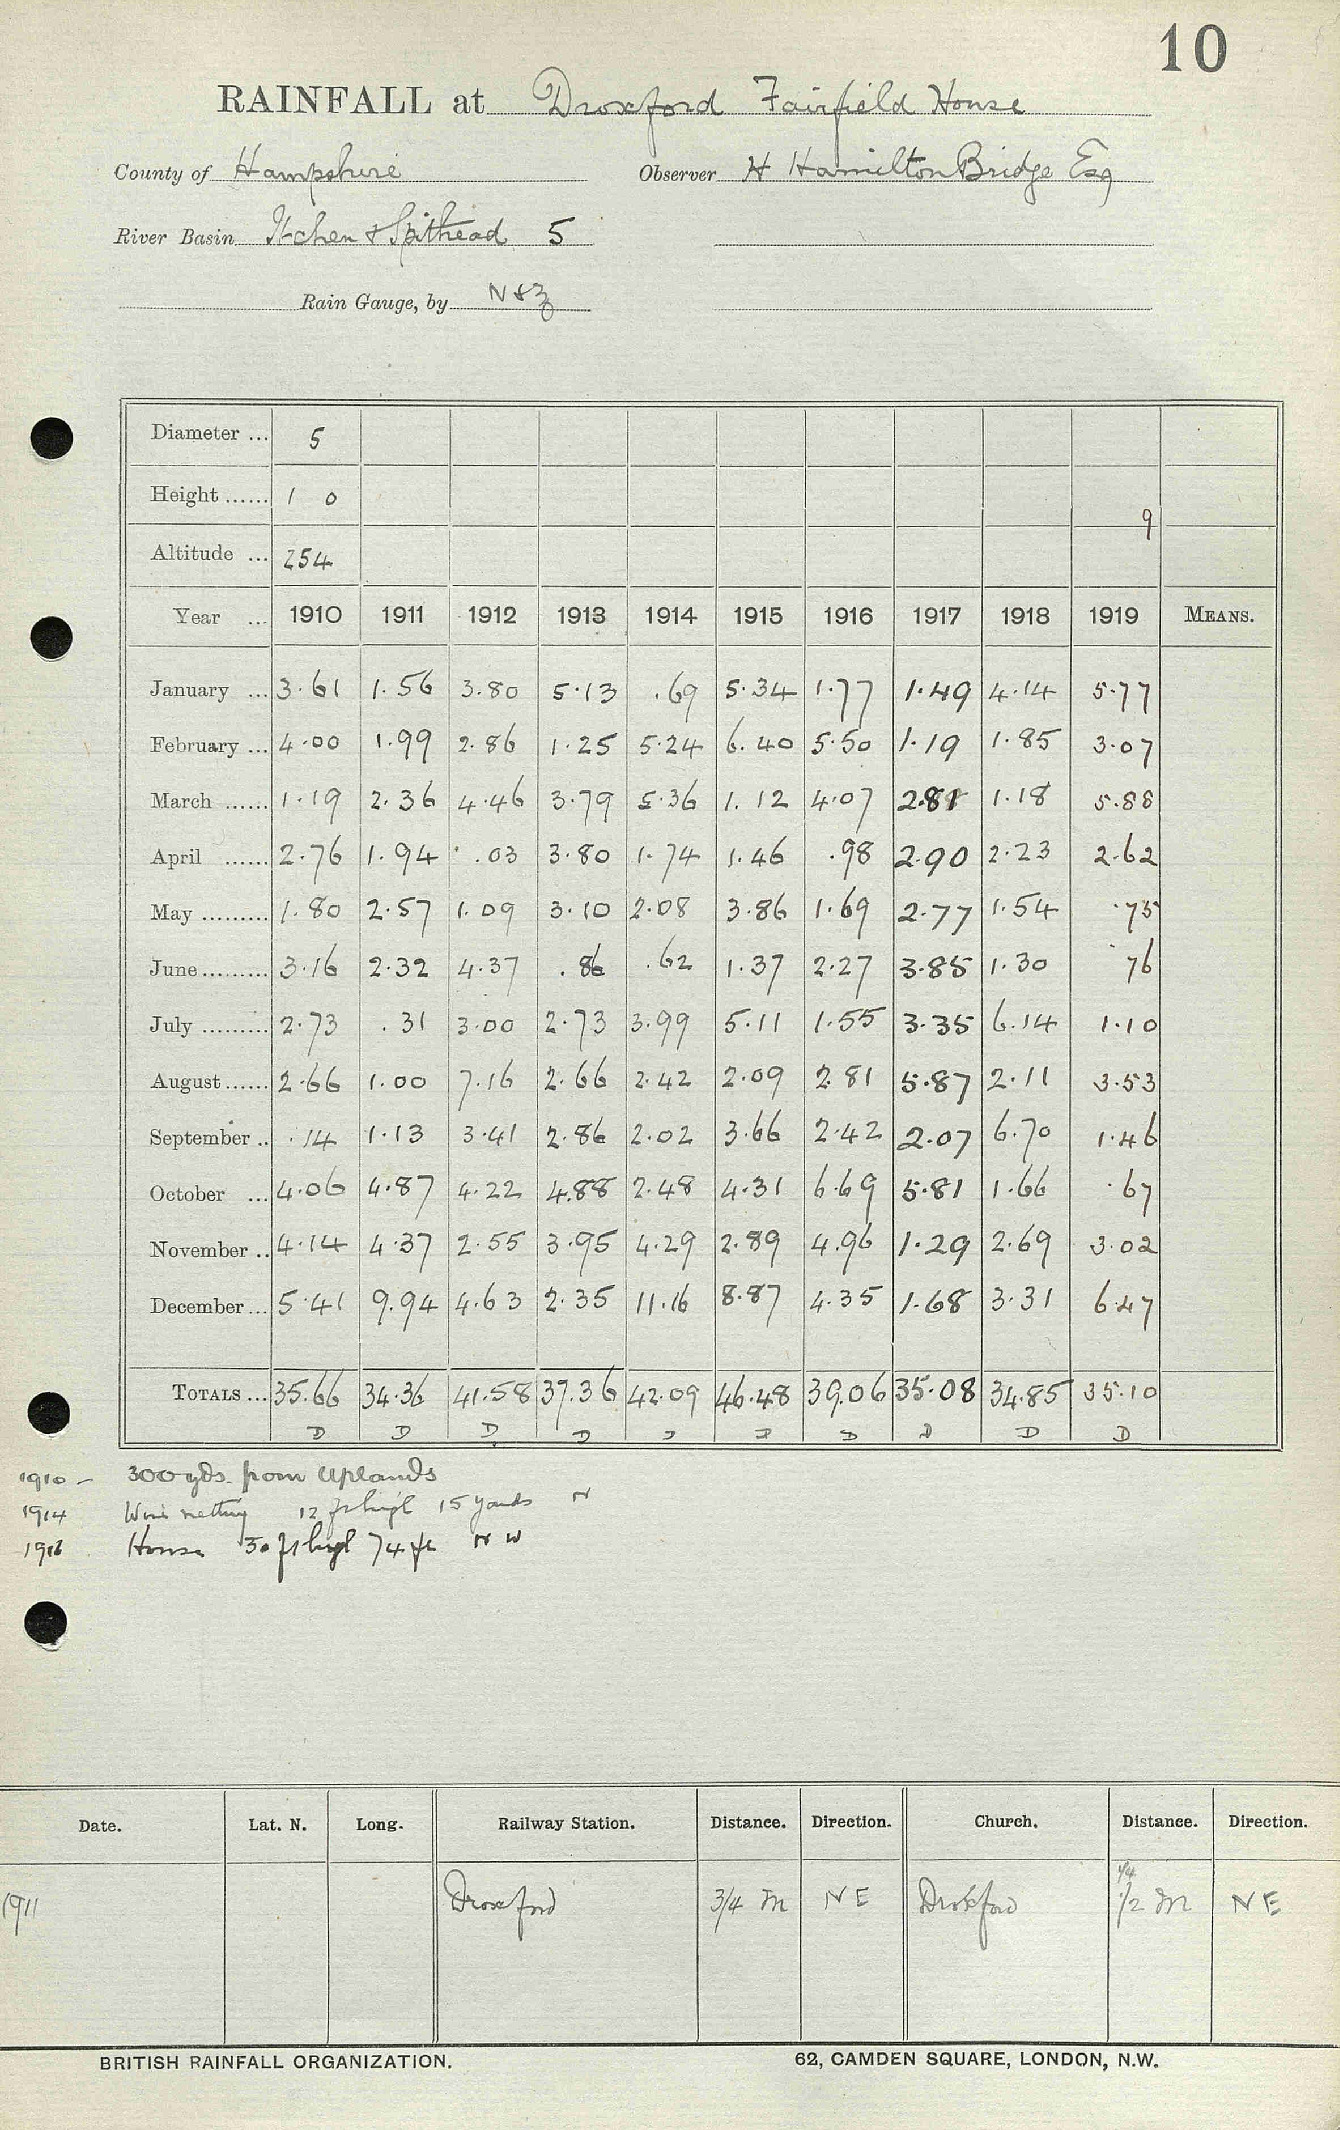 10
RAINFALL at Droxford Fairfield House
County of Hampshire Observer H Hamilton Bridge Esq
River Basin Itchen & Spithead 5
Rain Gauge, by N & Z
Diameter ... 5
Height ...... 1 0
9
Altitude ... 254
Year ... 1910 1911 1912 1913 1914 1915 1916 1917 1918 1919 MEANS.
January ... 3.61 1.56 3.80 5.13 .69 5.34 1.77 1.49 4.14 5.77
February ... 4.00 1.99 2.86 1.25 5.24 6.40 5.50 1.19 1.85 3.07
March ...... 1.19 2.36 4.46 3.79 5.36 1.12 4.07 2.81 1.18 5.88
April ...... 2.76 1.94 .03 3.80 1.74 1.46 .98 2.90 2.23 2.62
May ......... 1.80 2.57 1.09 3.10 2.08 3.86 1.69 2.77 1.54 .75
June ......... 3.16 2.32 4.37 .86 .62 1.37 2.27 3.85 1.30 76
July ......... 2.73 .31 3.00 2.73 3.99 5.11 1.55 3.35 6.14 1.10
August ...... 2.66 1.00 7.16 2.66 2.42 2.09 2.81 5.87 2.11 3.53
September .. .14 1.13 3.41 2.86 2.02 3.66 2.42 2.07 6.70 1.46
October ... 4.06 4.87 4.22 4.88 2.48 4.31 6.69 5.81 1.66 .67
November .. 4.14 4.37 2.55 3.95 4.29 2.89 4.96 1.29 2.69 3.02
December ... 5.41 9.94 4.63 2.35 11.16 8.87 4.35 1.68 3.31 6.47
TOTALS ... 35.66 34.36 41.58 37.36 42.09 46.48 39.06 35.08 34.85 35.10
D D D D D D D D D D
1910 - 300 yds. from Uplands
1914 Wire netting 12 ft high 15 yards N
1916 House 30 ft high 74 ft N W
Date. Lat. N. Long. Railway Station. Distance. Direction. Church. Distance. Direction.
1/4
1911 Droxford 3/4 m NE Droxford 1/2 m NE
BRITISH RAINFALL ORGANIZATION. 62, CAMDEN SQUARE, LONDON, N.W.